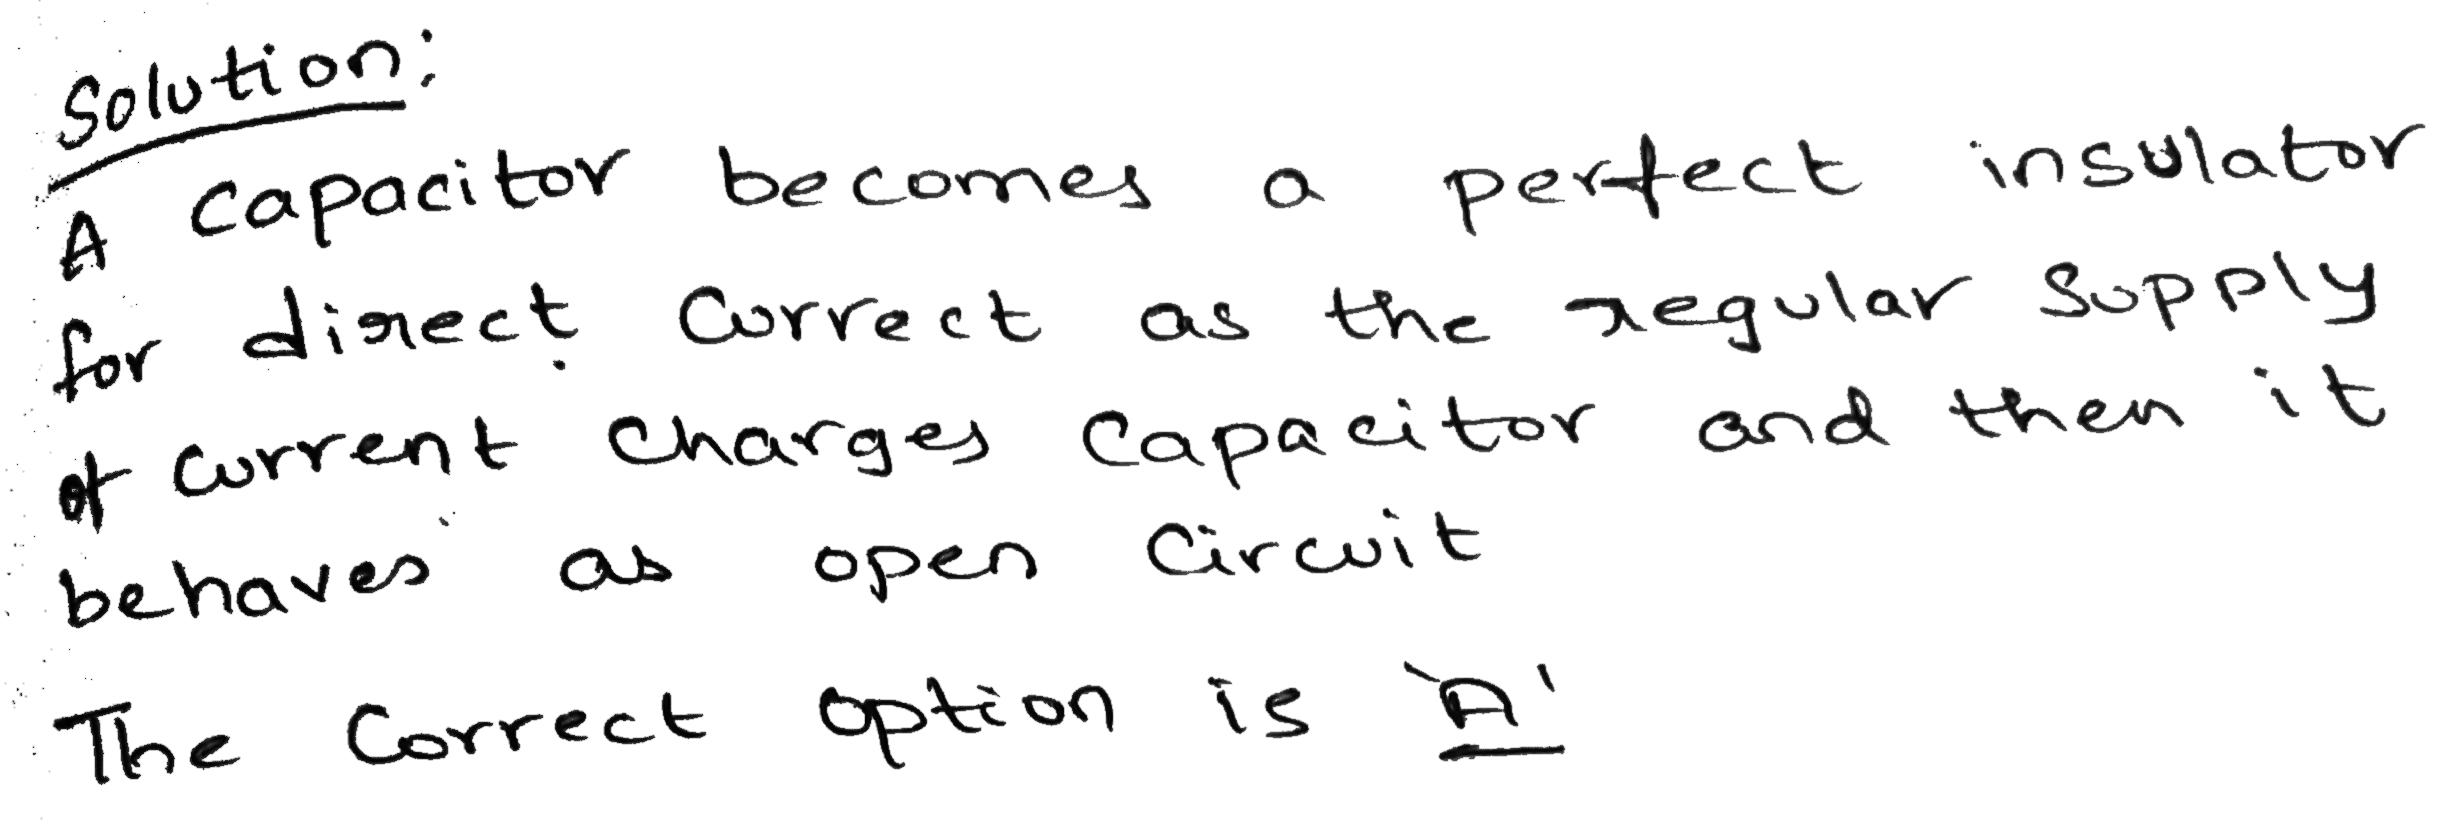 Solution:
A capacitor becomes a perfect insulator
for direct Currect as the regular Supply
of Current Charges Capacitor and then it
behaves as open Circuit
The Correct option is 'A'